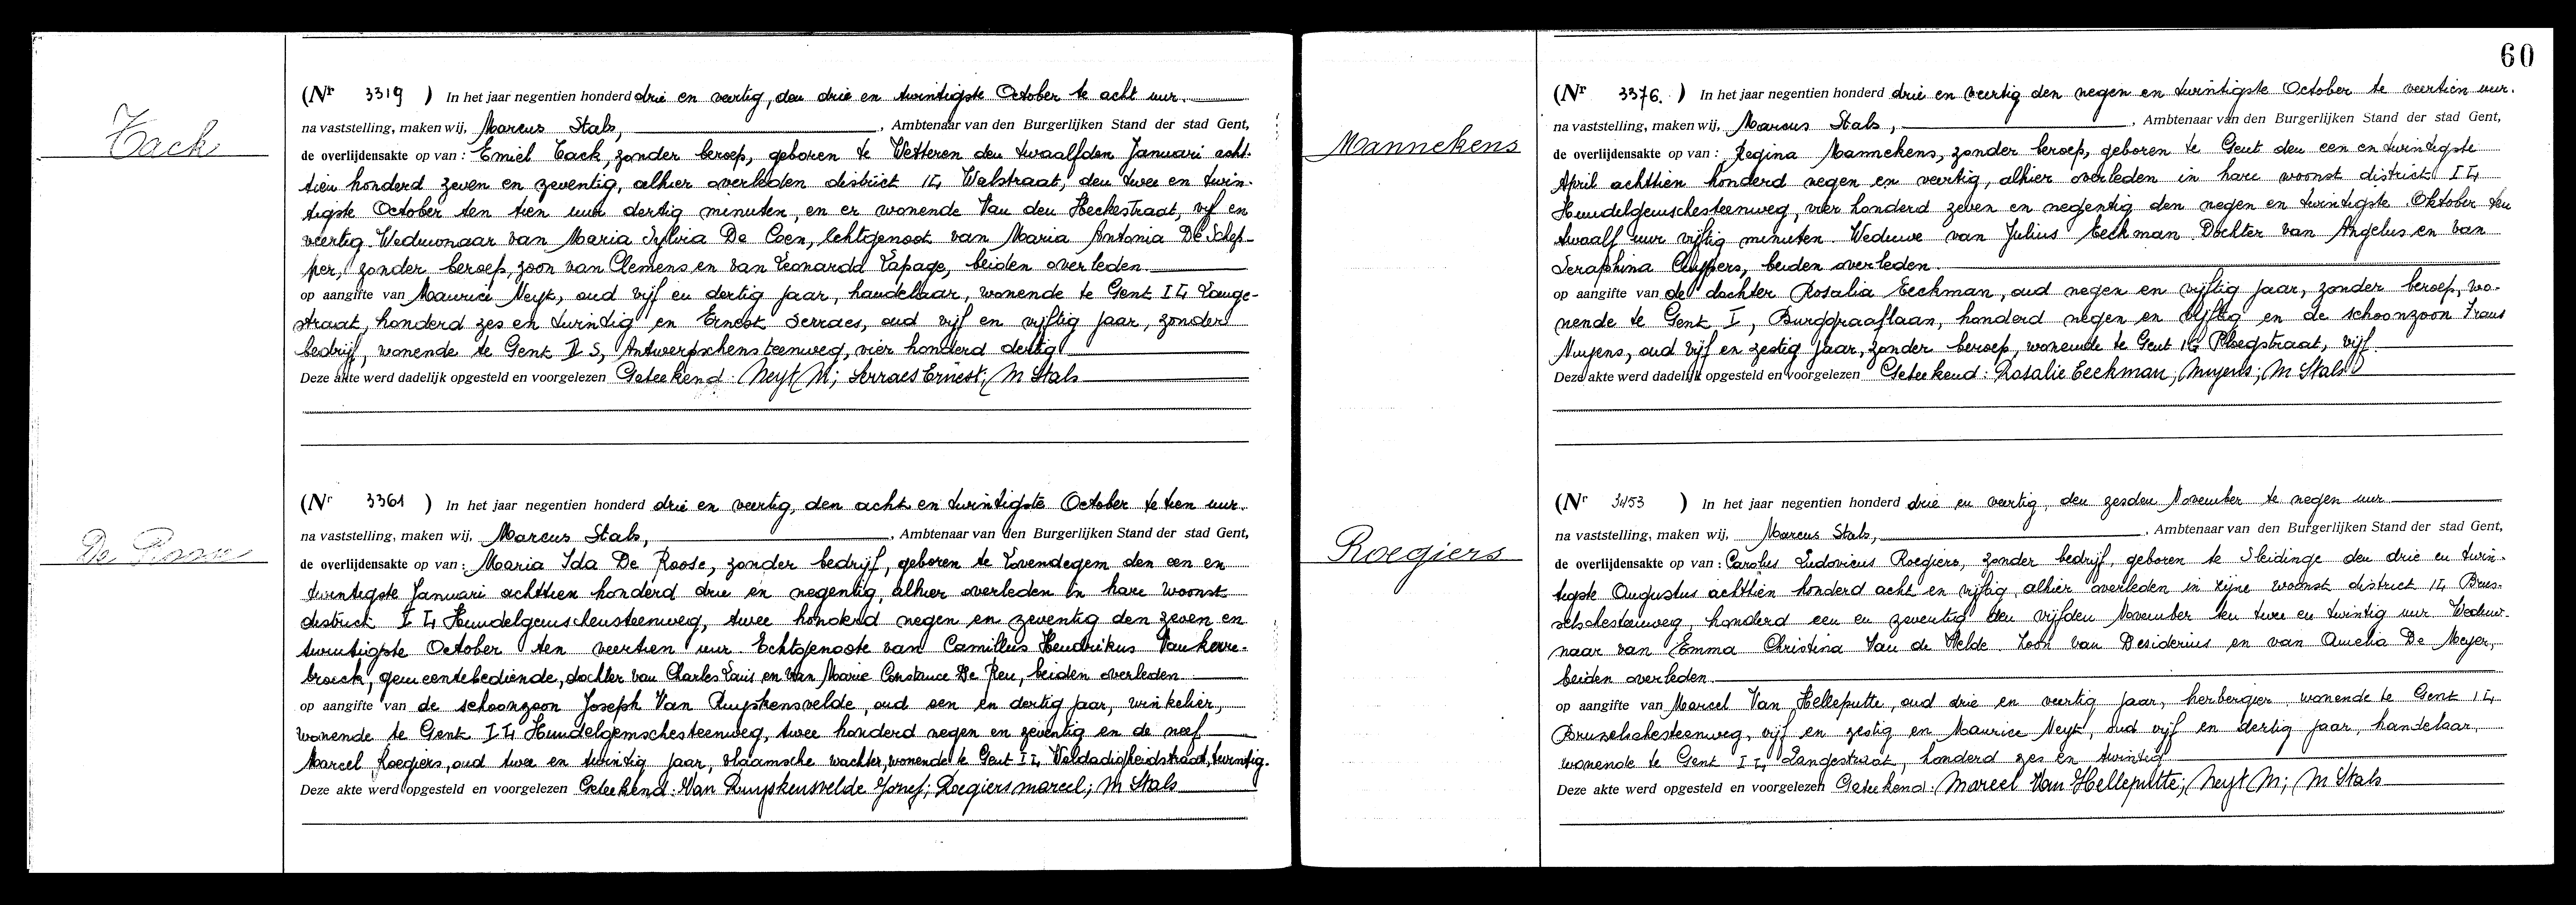 Tack
(Nr 3319 ) In het jaar negentien honderd drie en veertig, den drie en twintigste October te acht uur.
na vaststelling, maken wij, Marcus Stals, , Ambtenaar van den Burgerlijken Stand der stad Gent,
de overlijdensakte op van : Emiel Tack, zonder beroep, geboren te Wetteren den twaalfden Januari acht-
tien honderd zeven en zeventig, alhier overleden district I4 Walstraat, den twee en twin-
tigste October ten tien uur dertig minuten, en er wonende Van den Heckestraat, vijf en
veertig. Weduwnaar van Maria Sylvia De Coen, Echtgenoot van Maria Antonia De Schep-
per, zonder beroep, zoon van Clemens en van Leonarda Lapage, beiden overleden.
op aangifte van Maurice Neyt, oud vijf en dertig jaar, handelaar, wonende te Gent I4 Lange-
straat, honderd zes en twintig en Ernest Serraes, oud vijf en vijftig jaar, zonder
bedrijf, wonende te Gent S, Antwerpschensteenweg, vier honderd dertig
Deze akte werd dadelijk opgesteld en voorgelezen Geteekend: Neyt M; Serraes Ernest; M Stals
De Roose
(Nr 3361 ) In het jaar negentien honderd drie en veertig, den acht en twintigste October te tien uur.
na vaststelling, maken wij, Marcus Stals, , Ambtenaar van den Burgerlijken Stand der stad Gent,
de overlijdensakte op van : Maria Ida De Roose, zonder bedrijf, geboren te Lovendegem den een en
twintigste Januari achttien honderd drie en negentig, alhier overleden in hare woonst
district I4 Hundelgemschensteenweg, twee honderd negen en zeventig den zeven en
twintigste October ten veertien uur. Echtgenoote van Camillus Hendrikus Vankerre-
broeck, gemeentebediende, dochter van Charles Louis en van Marie Constance De Reu, beiden overleden
op aangifte van de schoonzoon Joseph Van Ruyskensvelde, oud een en dertig jaar, winkelier,
wonende te Gent I4 Hundelgemschesteenweg, twee honderd negen en zeventig en de neef
Marcel Roegiers, oud twee en twintig jaar, vlaamsche wachter, wonende te Gent I4 Weldadigheidstraat, twintig.
Deze akte werd opgesteld en voorgelezen Geteekend: Van Ruyskensvelde Jozef; Roegiers marcel; M Stals
60
Mannekens
(Nr 3376. ) In het jaar negentien honderd drie en veertig den negen en twintigste October te veertien uur.
na vaststelling, maken wij, Marcus Stals, , Ambtenaar van den Burgerlijken Stand der stad Gent,
de overlijdensakte op van : Regina Mannekens, zonder beroep, geboren te Gent den een en twintigste
April achttien honderd negen en veertig, alhier overleden in hare woonst district I4
Hundelgemschesteenweg, vier honderd zeven en negentig den negen en twintigste Oktober ten
twaalf uur vijftig minuten. Weduwe van Julius Eeckman. Dochter van Angelus en van
Seraphina Cuypers, beiden overleden.
op aangifte van de dochter Rosalia Eeckman, oud negen en vijftig jaar, zonder beroep, wo-
nende te Gent I, Burggraaflaan, honderd negen en vijftig en de schoonzoon Frans
Nuyens, oud vijf en zestig jaar, zonder beroep, wonende te Gent Ploegstraat, vijf.
Deze akte werd dadelijk opgesteld en voorgelezen Geteekend: Rosalie Eeckman; Nuyens; M Stals
Roegiers
(Nr 3453 ) In het jaar negentien honderd drie en veertig, den zesden November te negen uur
na vaststelling, maken wij, Marcus Stals, , Ambtenaar van den Burgerlijken Stand der stad Gent,
de overlijdensakte op van : Carolus Ludovicus Roegiers, zonder bedrijf, geboren te Sleidinge den drie en twin-
tigste Augustus achttien honderd acht en vijftig alhier overleden in zijne woonst district I4 Brus-
selschesteenweg, honderd een en zeventig den vijfden November ten twee en twintig uur. Weduw-
naar van Emma Christina Van de Velde. Zoon van Desiderius en van Amelia De Meyer,
beiden overleden.
op aangifte van Marcel Van Helleputte, oud drie en veertig jaar, herbergier wonende te Gent I4
Brusselschesteenweg, vijf en zestig en Maurice Neyt, oud vijf en dertig jaar, handelaar,
wonende te Gent I4 Langestraat, honderd zes en twintig
Deze akte werd opgesteld en voorgelezen Geteekend: Marcel Van Helleputte; Neyt M; M Stals